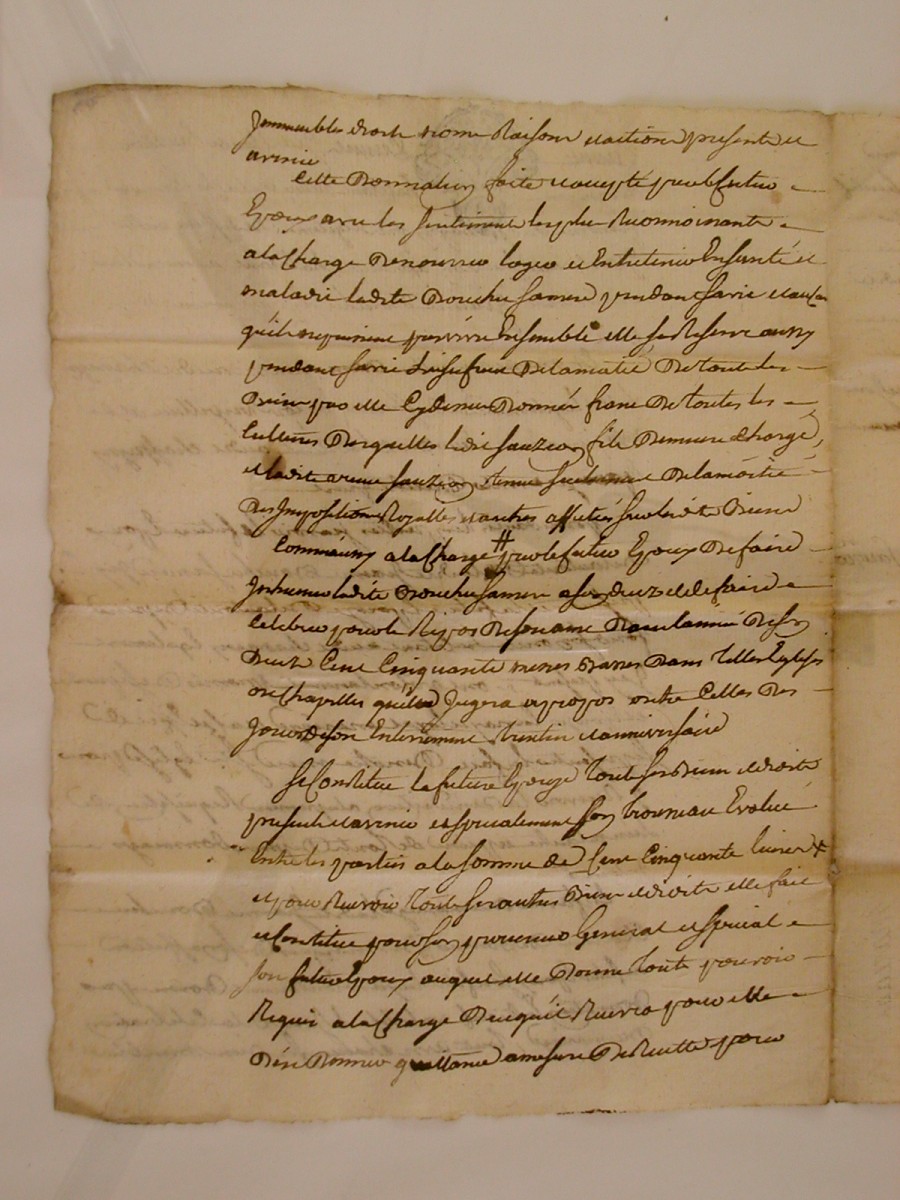 Immeubles droits noms Raisons et actions presents et
avenir
Cette Donnation faite et accepté par le futur
Epoux avec les sentiments les plus Reconnoissants
a la Charge De nourrir loger et Entretenir En santé et
maladie ladite Bouchu Samson pendant sa vie et au cas
qu'ils ne puissent pas vivre Ensemble elle se Reserve aussy
pendant sa vie l'usufruit De la moitié De tous les
Biens par elle Cy dessus Donnés franc De toutes les
Cultures Desquelles ledit Sauzion fils Demeure chargé,
et ladite veuve Sauzion tenue seulement De la moitié
Des Impositions Royalles et autres affectés sur lesdits Biens
Comme aussy a la Charge # par le futur Epoux De faire
Inhumer ladite Bouchu Samson a son deces et de faire
Celebrer pour le Repos De son ame Dans l'année De son
Deces Cent Cinquante messes Basses Dans telles Eglises
ou Chapelles qu'il Jugera apropos outre Celles Des
Jours de son Enterrement trentin et anniversaire
Se Constitue la future Epouse Tout ses Biens et droits
presents et avenir et specialement son trousseau Evalué
Entre les parties a la somme de Cent Cinquante livres
et pour Recevoir Tout ses autres Biens et droits elle fait
et Constitue pour son procureur General et special
son futur Epoux auquel elle Donne Tout pouvoir
Requis a la Charge De ce qu'il Recevra pour elle
D'en Donner quittance a mesure De Recette pour